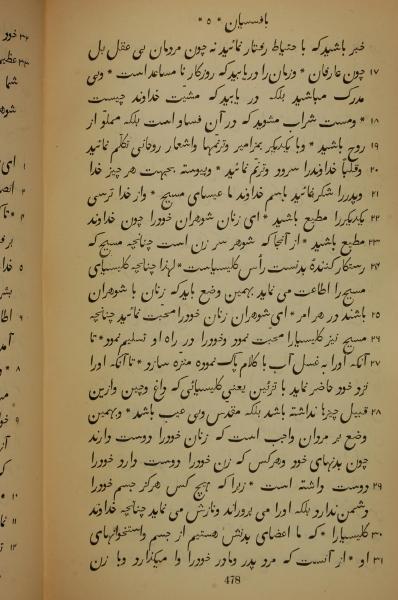 بافسسیان * ۵ *
خبر باشید که با حتیاط رفتار نمائید نه چون مردمان بی عقل بل
۱۷ چون عارفان * وزمان را دریابید که روزگار نا مساعد است * وبی
مدرک مباشید بلکه در یابید که مشیّت خداوند چیست
۱۸ * ومست شراب مشوید که در آن فساو است بلکه مملوّ از
۱۹ روح باشید * وبا یکدیگر بمزامیر وترنّمها واشعار روحانی تکلّم نمائید
۲۰ وقلباً خداوندرا سرود وترنّم نمائید * وپیوسته بجهت هر چیز خدا
۲۱ وپدررا شکر نمائید باسم خداوند ما عیسای مسیح * واز خدا ترسی
۲۲ یکدیگررا مطیع باشید * ای زنان شوهران خودرا چون خداوند
۲۳ مطیع باشید * از آنجا که شوهر سر زن است چنانچه مسیح که
۲۴ رستگار کنندهٔ بدنست رأس کلیسیاست * لهذا چنانچه کلیسیای
مسیح را اطاعت می نماید بهمین وضع باید که زنان با شوهران
۲۵ باشند در هر امر * ای شوهران زنان خودرا محبت نمائید چنانچه
۲۶ مسیح نیز کلیسیارا محبت نمود وخودرا در راه او تسلیم نمود * تا
۲۷ آنکه اورا به غسل آب با کلام پاک نموده منزّه سازد * تا آنکه اورا
نزد خود حاضر نماید با تزئین یعنی کلیسیائی که داغ وچین وازین
۲۸ قبیل چیزها نداشته باشد بلکه مقدس وبی عیب باشد * وبهمین
وضع بر مردان واجب است که زنان خودرا دوست دارند
چون بدنهای خود وهر کس که زن خودرا دوست دارد خودرا
۲۹ دوست داشته است * زیرا که هیچ کس هرگز جسم خودرا
دشمن ندارد بلکه اورا می پروراند ونازش می نماید چنانچه خداوند
۳۰ کلیسیارا * که ما اعضای بدنش هستیم از جسم واستخوانهای
۳۱ او * از آنست که مرد پدر ومادر خودرا وا میگذارد وبا زن
478